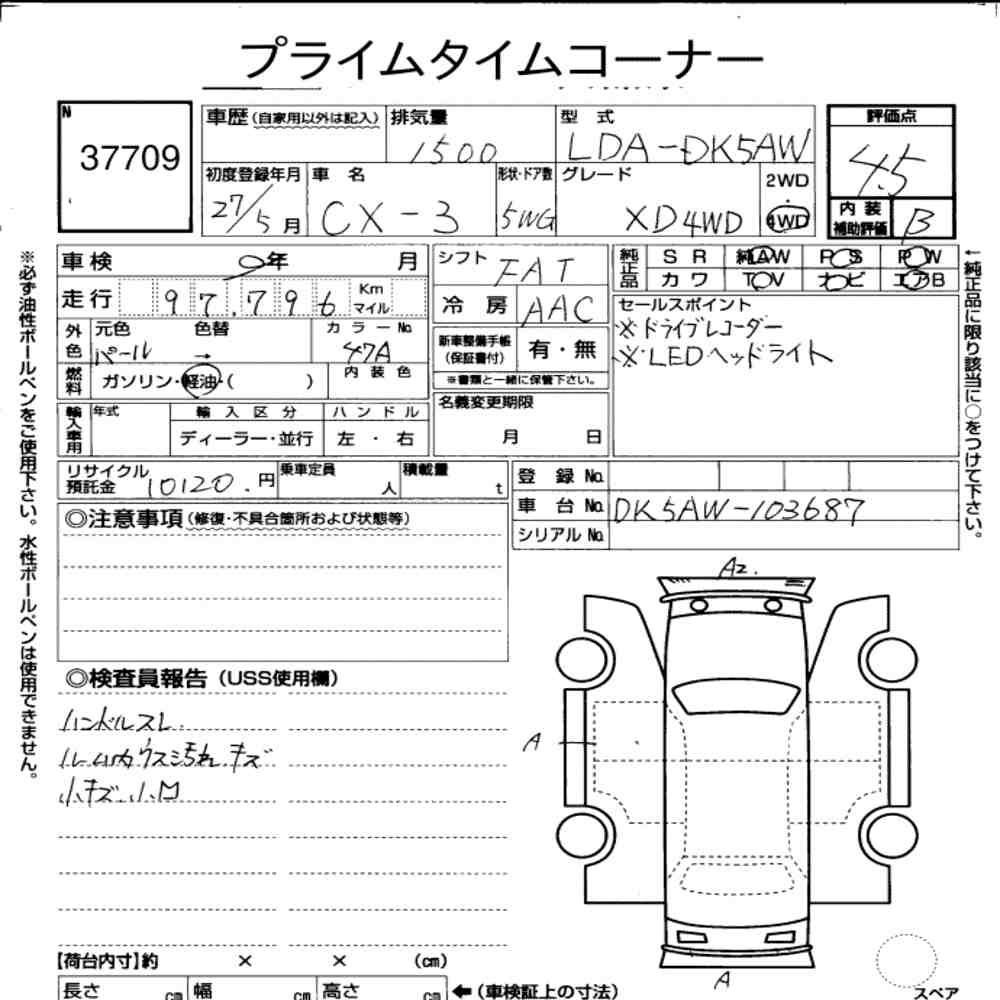 プライムタイムコーナー
N
37709
車歴(自家用以外は記入)
排気量
1500
型式
LDA-DK5AW
評価点
4.5
初度登録年月
27/5月
車名
CX-3
形状・ドア数
5WG
グレード
XD4WD
2WD
4WD
内装
補助評価
B
車検
年 月
シフト
FAT
純正品
SR 純AW PS PW
カワ TV ナビ エアB
走行
97,796
Km
マイル
冷房
AAC
セールスポイント
※ドライブレコーダー
※LEDヘッドライト
外色
元色
パール
色替
→
カラーNo.
47A
新車整備手帳
(保証書付)
有・無
※書類と一緒に保管下さい。
燃料
ガソリン・軽油・( )
内装色
名義変更期限
月 日
輸入車用
年式
輸入区分
ディーラー・並行
ハンドル
左・右
リサイクル
預託金
10120.円
乗車定員
人
積載量
t
登録No.
車台No.
DK5AW-103687
シリアルNo.
◎注意事項(修復・不具合箇所および状態等)
◎検査員報告(USS使用欄)
ハンドルスレ
ルーム内ウスミ汚れ キズ
小キズ.小凹
A2.
A
A
【荷台内寸】約 × × (cm)
長さ cm
幅 cm
高さ cm
←(車検証上の寸法)
スペア
※必ず油性ボールペンをご使用下さい。水性ボールペンは使用できません。
←純正品に限り該当に○をつけて下さい。